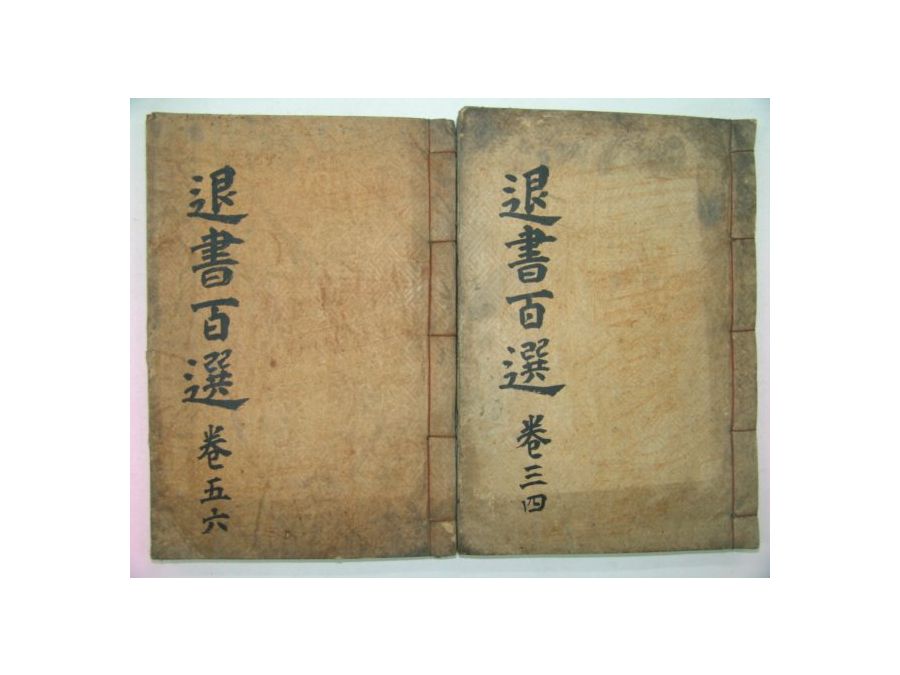 退書百選 卷三四
退書百選 卷五六